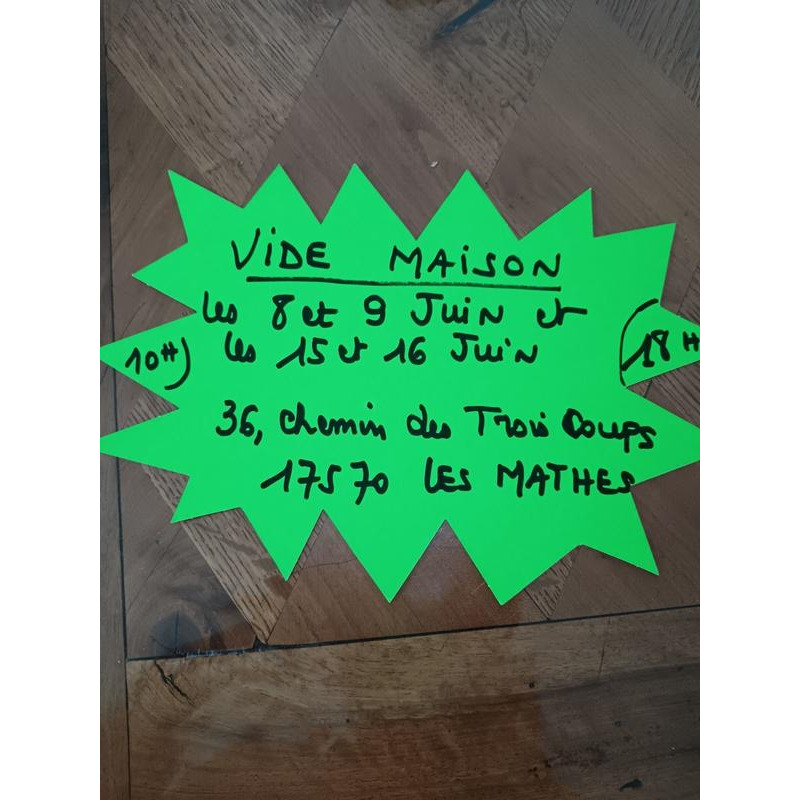 VIDE MAISON
les 8 et 9 Juin et
les 15 et 16 Juin
10H
18H
36, chemin des Trois Coups
17570 LES MATHES